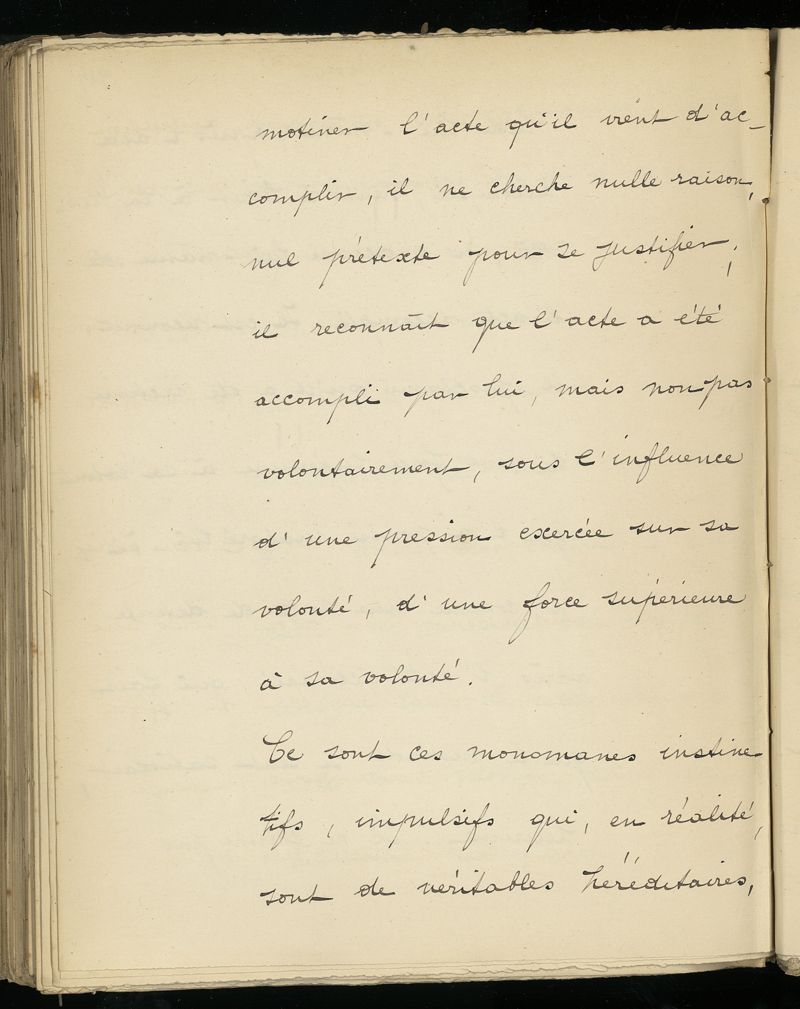 motiver l'acte qu'il vient d'ac-
complir, il ne cherche nulle raison,
nul prétexte pour se justifier,
il reconnaît que l'acte a été
accompli par lui, mais non pas
volontairement, sous l'influence
d'une pression exercée sur sa
volonté, d'une force supérieure
à sa volonté.
Ce sont ces monomanes instinc
tifs, impulsifs qui, en réalité,
sont de véritables héréditaires,